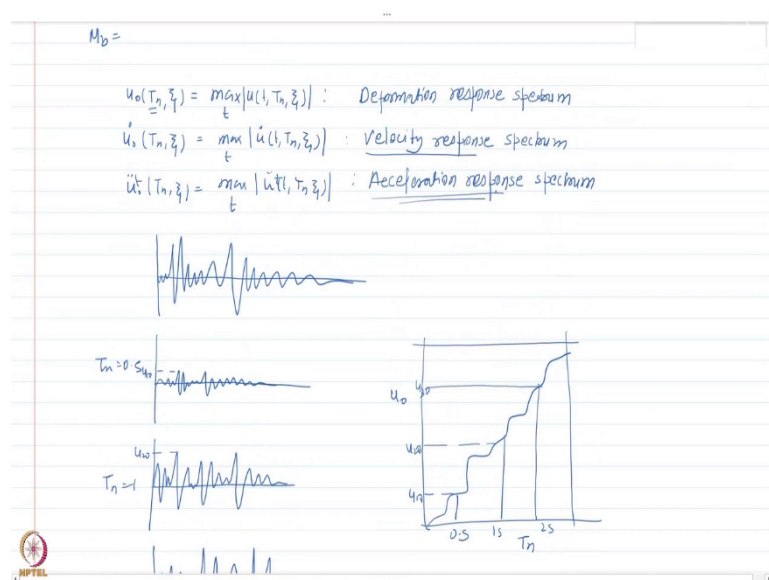 M_b =
u_0(T_n, ξ) = max_t |u(t, T_n, ξ)| : Deformation response spectrum
u̇_0(T_n, ξ) = max_t |u̇(t, T_n, ξ)| : Velocity response spectrum
ü_0^t(T_n, ξ) = max_t |ü^t(t, T_n, ξ)| : Acceleration response spectrum
T_n = 0.5
u_10
T_n = 1
u_20
u_0
u_30
u_20
u_10
0.5 1s 2s
T_n
NPTEL